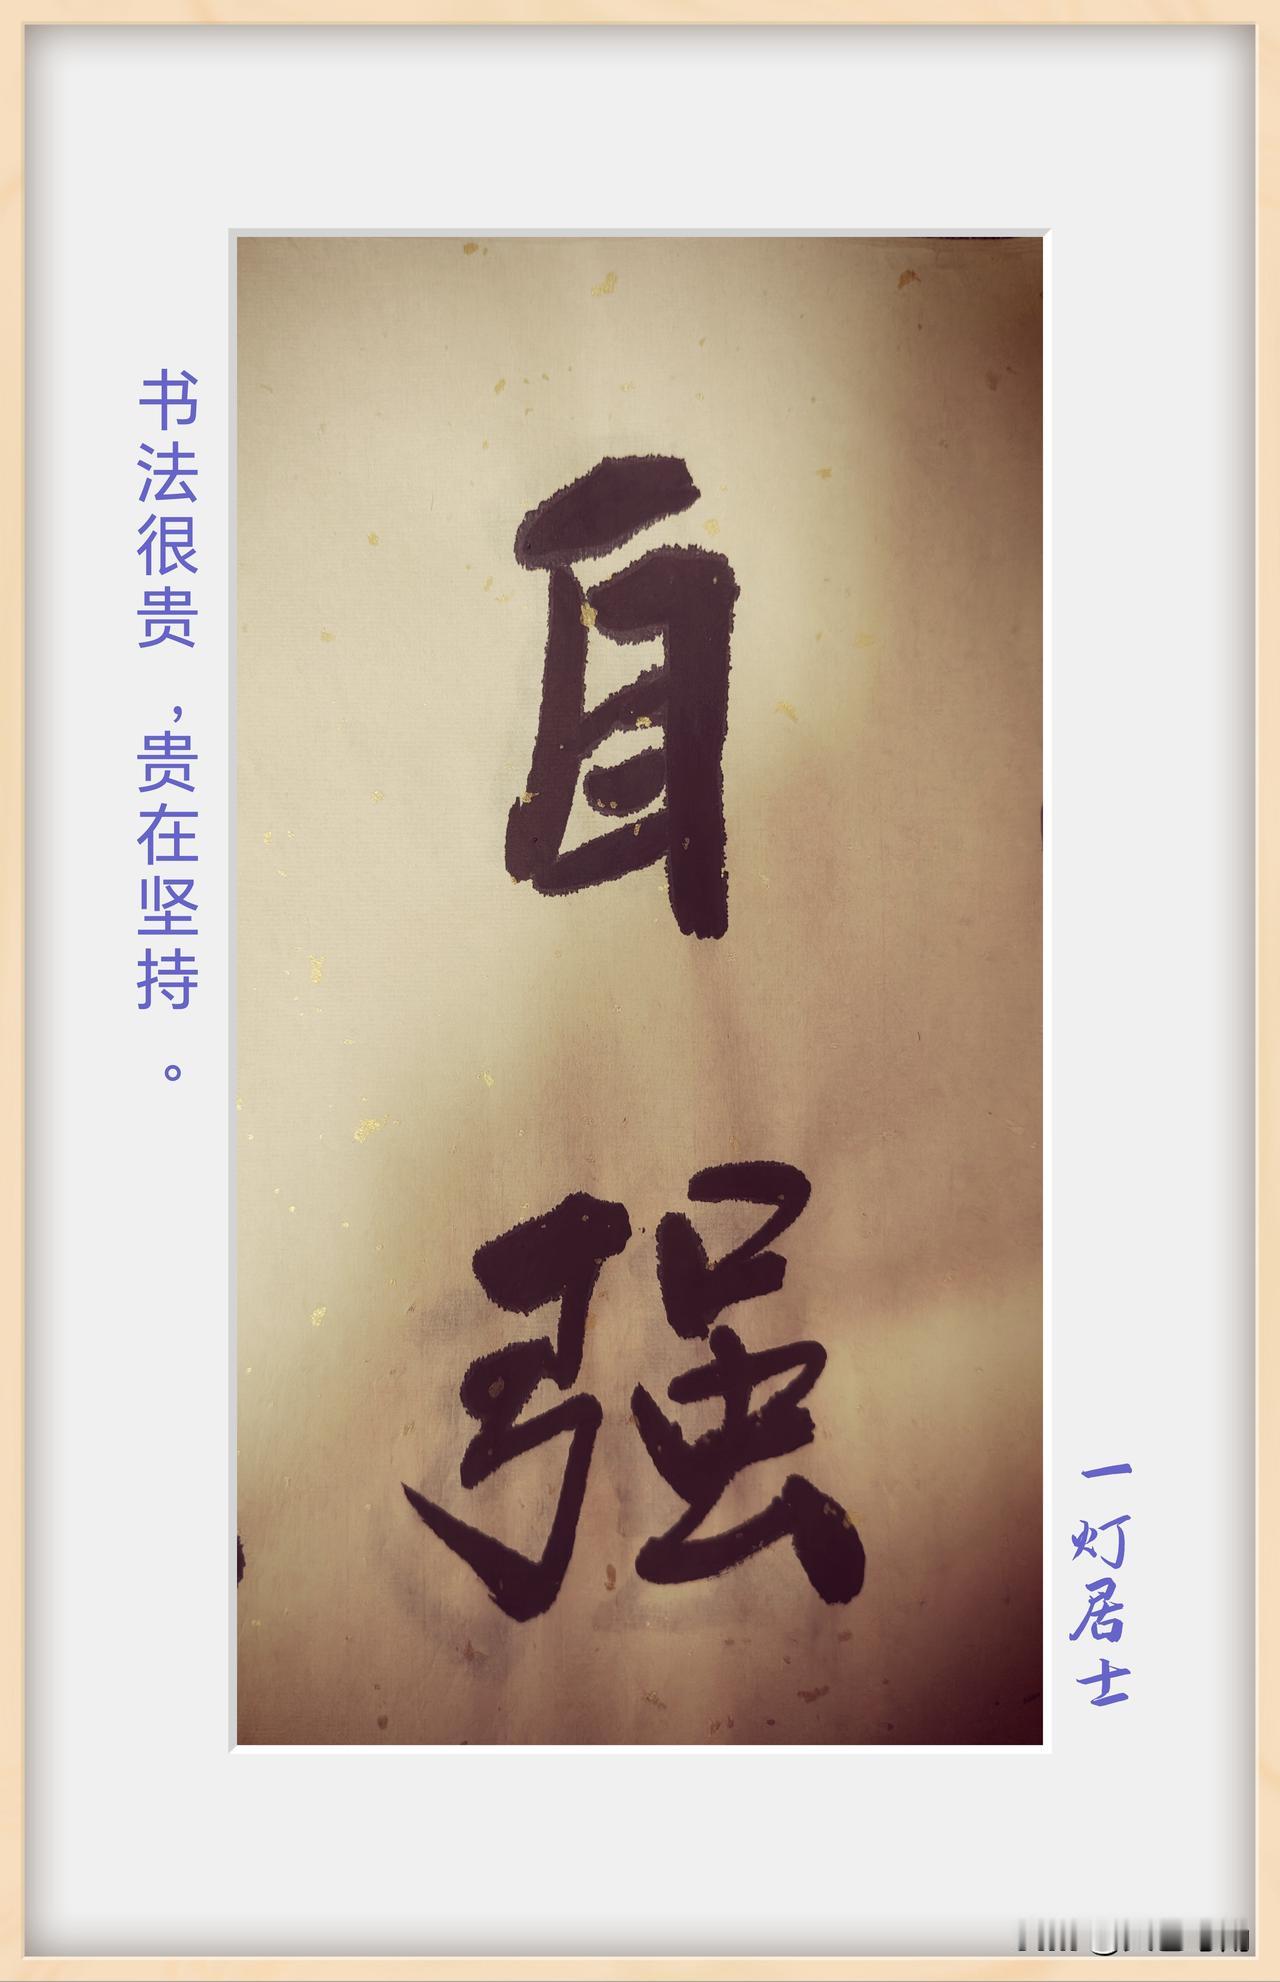 书法很贵，贵在坚持。
自强
一灯居士